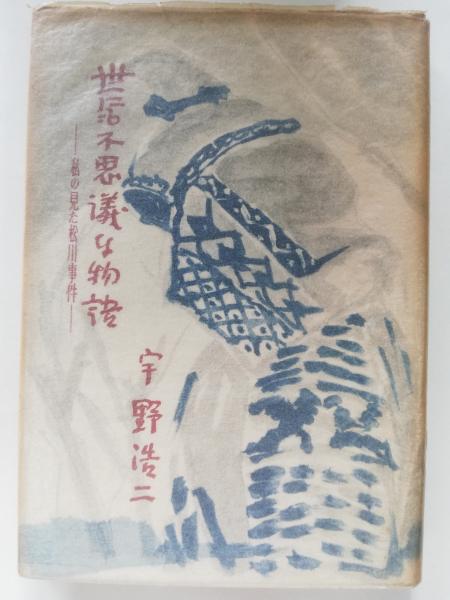 世にも不思議な物語
―私の見た松川事件―
宇野浩二